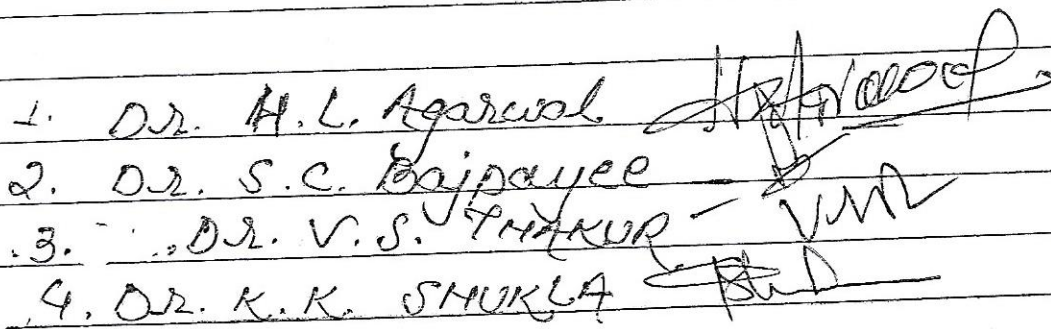 1. Dr. H.L. Agarwal
2. Dr. S.C. Bajpayee -
3. Dr. V.S. THAKUR -
4. Dr. K.K. SHUKLA